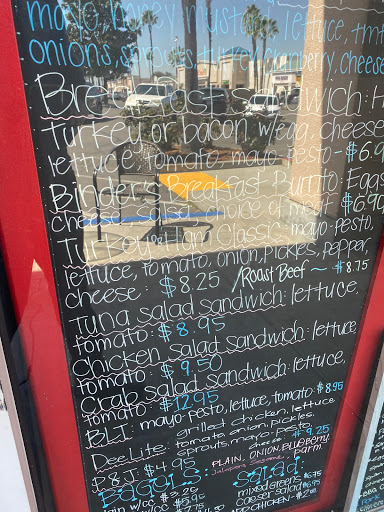 mayo, honey mustard, lettuce, tmt
onions, sprouts, turkey, cranberry, cheese
Breakfast Sandwich: H
Turkey or bacon w/egg, cheese
lettuce, tomato, mayo, pesto - $6.9
Binder's Breakfast Burrito Eggs
cheese, salsa choice of meat $6.90
Turkey or Ham Classic: mayo, pesto,
lettuce, tomato, onion, pickles, pepper,
cheese: $8.25 /Roast Beef ~ $8.75
Tuna salad sandwich: lettuce,
tomato: $8.95
Chicken salad sandwich: lettuce,
tomato: $9.50
Crab salad sandwich: lettuce,
tomato: $12.95
BLT: mayo, pesto, lettuce, tomato: $8.95
Dee Lite: grilled chicken, lettuce
tomato, onion, pickles,
sprouts, mayo, pesto,
cheese $9.25
PB&J: $4.95
BAGELS: PLAIN, ONION, BLUEBERRY,
Jalapeno, Sesame, parm
Salad:
w/cc $3.20
mixed greens $6.75
caesar salad $6.95
ADD CHICKEN - $2.00